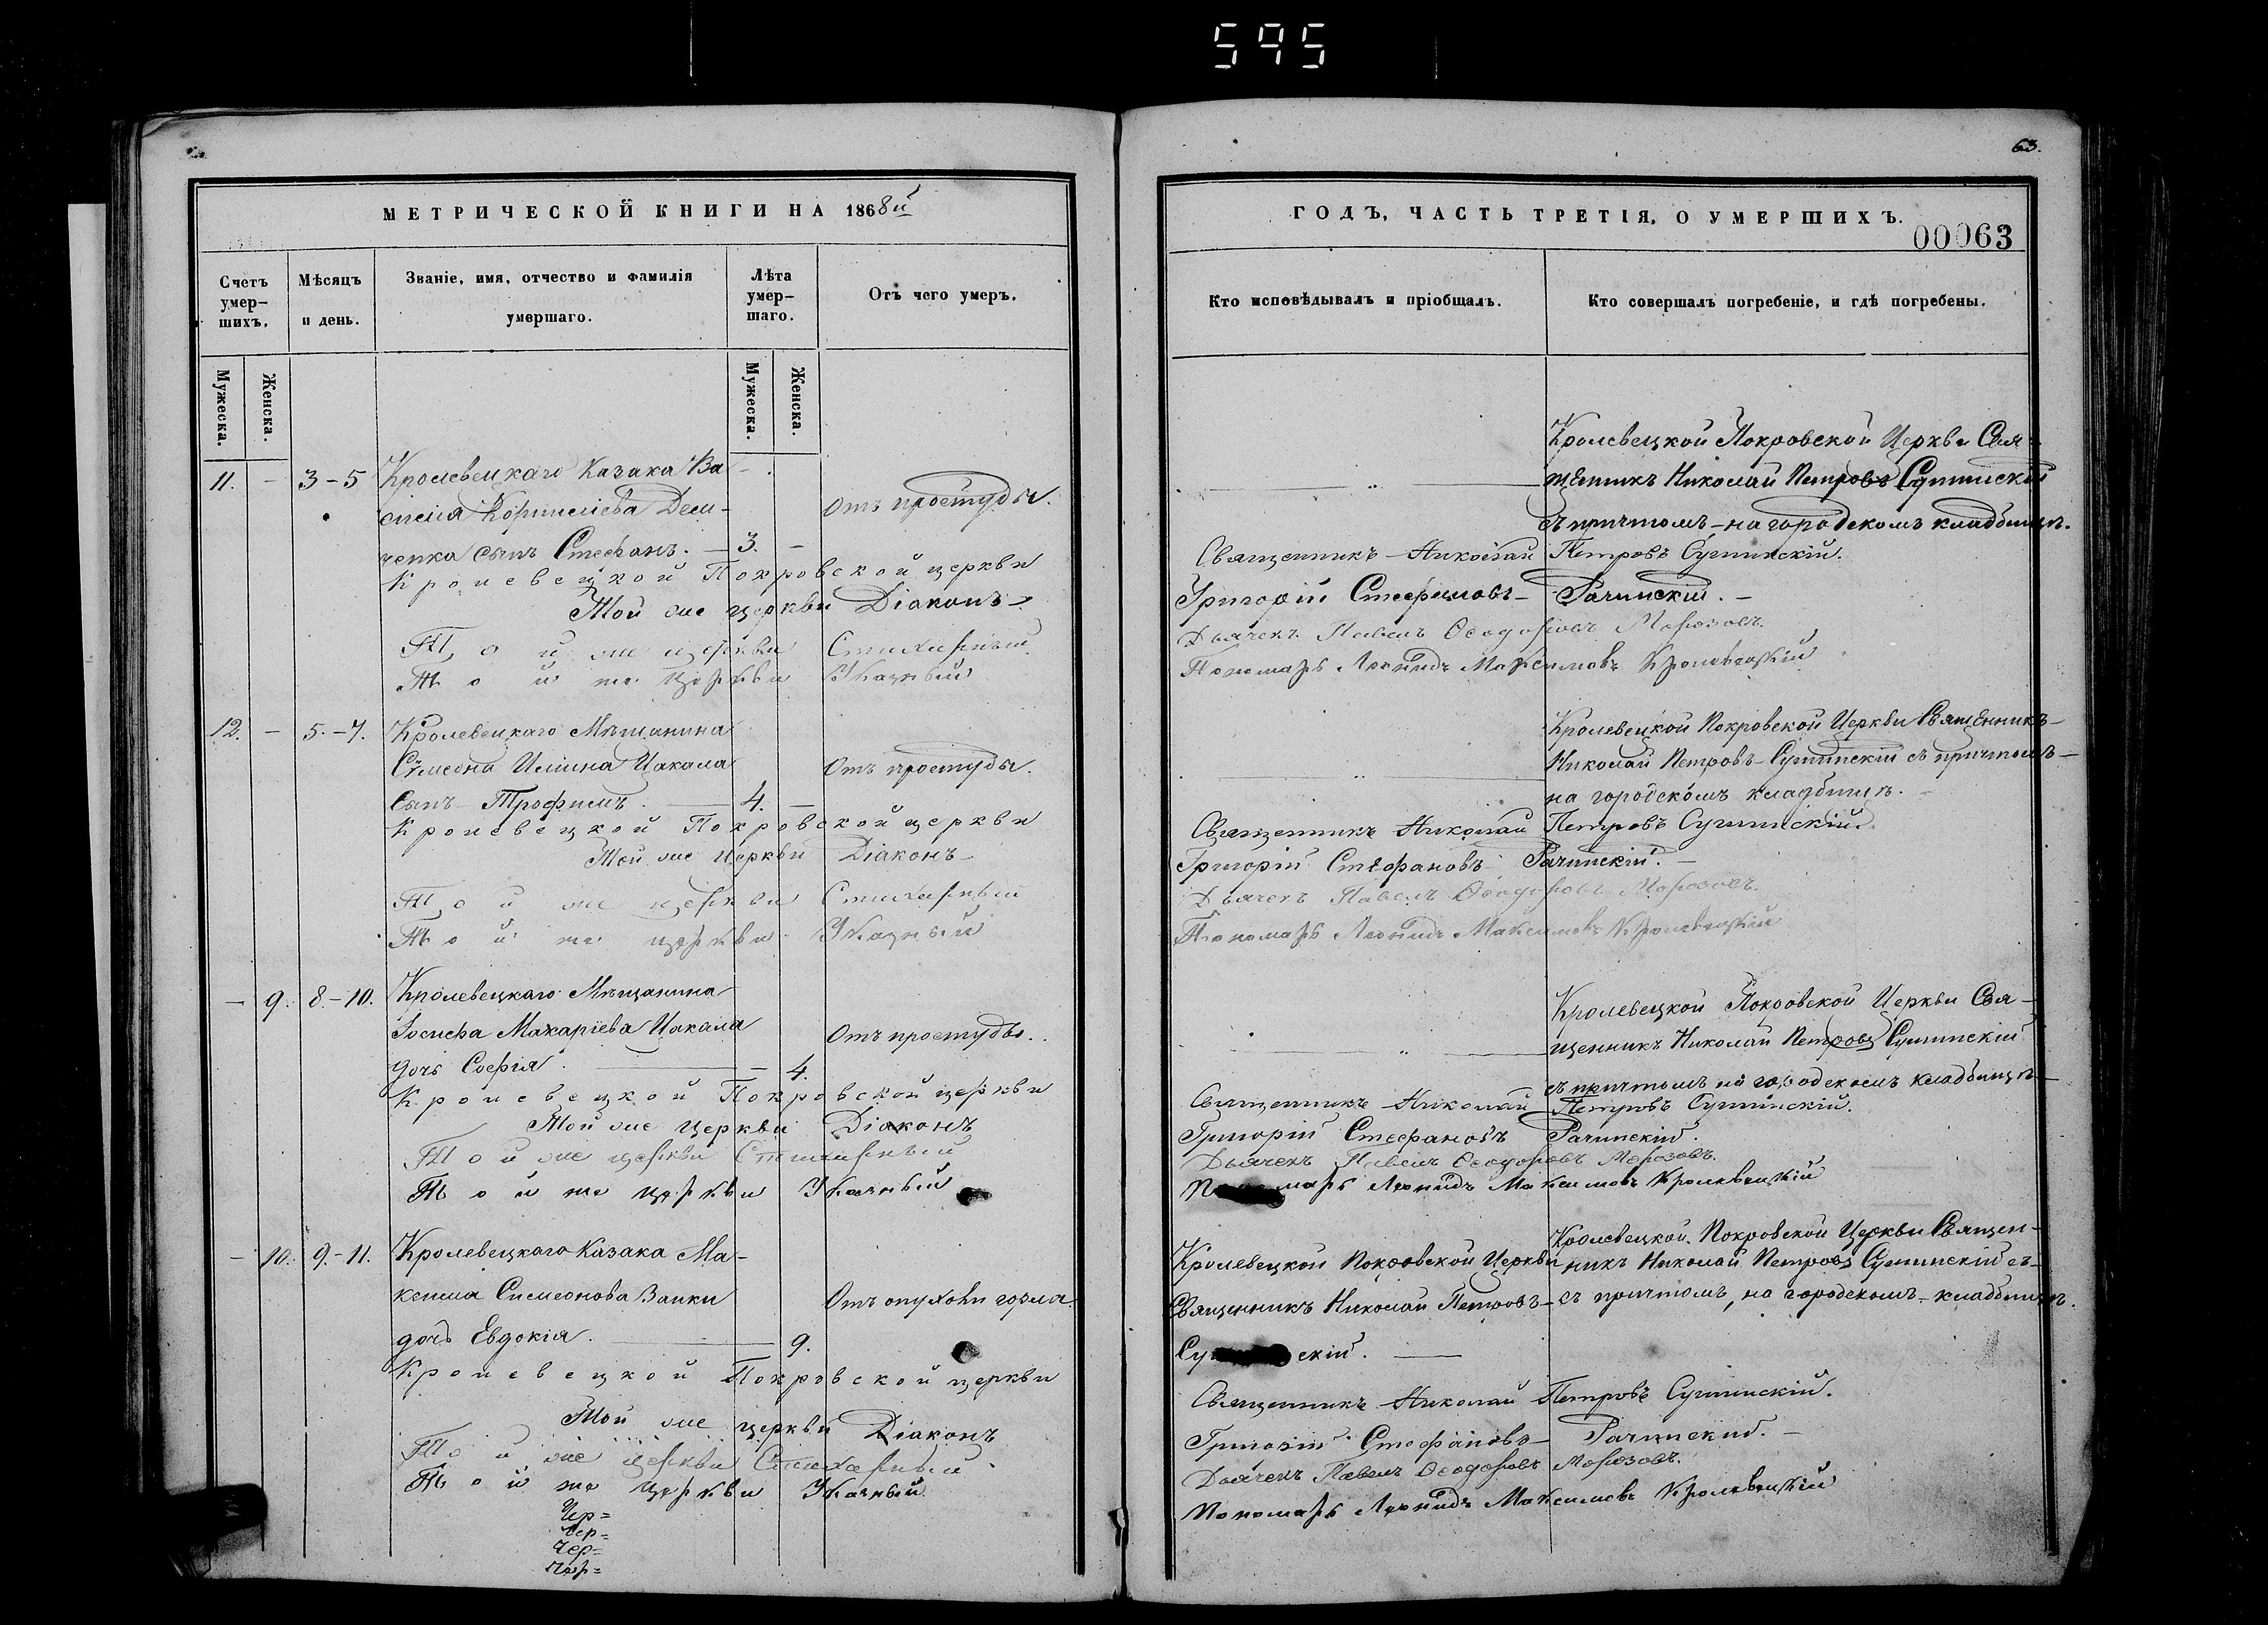 595
63.
МЕТРИЧЕСКОЙ КНИГИ НА 1868й
Счетъ умер-шихъ.
Мѣсяцъ и день.
Званіе, имя, отчество и фамилія умершаго.
Лѣта умер-шаго.
Отъ чего умеръ.
Мужеска.
Женска.
Мужеска.
Женска.
11. - 3-5 Кролевецкаго Казака Ва-
силія Корнилiева Дем-
Отъ простуды.
ченка сынъ Стефанъ. — 3. -
Кролевецкой Покровской церкви
Той же церкви Діаконъ
Той же церкви Стихарный
Той же церкви Указный
12. - 5.-7. Кролевецкаго Мѣщанина
Симеона Цакала
Отъ простуды.
Сынъ Трофимъ. — 4. -
Кролевецкой Покровской церкви
Той же церкви Діаконъ
Той же церкви Стихарный
Той же церкви Указный
- 9. 8-10. Кролевецкаго Мѣщанина
Іосифа Макаріева Цакала
Отъ простуды.
дочь Софія. — 4.
Кролевецкой Покровской церкви
Той же церкви Діаконъ
Той же церкви Стихарный
Той же церкви Указный
- 10. 9.-11. Кролевецкаго Казака Ма-
ксима Симеонова Заики
Отъ опухоли горла.
дочь Евдокія. — 9.
Кролевецкой Покровской церкви
Той же церкви Діаконъ
Той же церкви Стихарный
Той же церкви Указный
Чер=
Чер=
Чер=
Чер=
ГОДЪ, ЧАСТЬ ТРЕТІЯ, О УМЕРШИХЪ.
00063
Кто исповѣдывалъ и пріобщалъ.
Кто совершалъ погребеніе, и гдѣ погребены.
Кролевецкой Покровской Церкви Свя-
щенникъ Николай Петровъ
съ причтомъ, на городскомъ кладбищѣ.
Священникъ Николай Петровъ
Григорій Стефановъ Рачинскій.
Дьячекъ Павелъ Ѳеодоровъ Морозовъ.
Пономарь Леонидъ Максимовъ Кролевецкій
Кролевецкой Покровской Церкви Священникъ
Николай Петровъ съ причтомъ
на городскомъ кладбищѣ.
Священникъ Николай Петровъ
Григорій Стефановъ Рачинскій.
Дьячекъ Павелъ Ѳеодоровъ Морозовъ.
Пономарь Леонидъ Максимовъ Кролевецкій
Кролевецкой Покровской Церкви Свя-
щенникъ Николай Петровъ
съ причтомъ на городскомъ кладбищѣ
Священникъ Николай Петровъ
Григорій Стефановъ Рачинскій.
Дьячекъ Павелъ Ѳеодоровъ Морозовъ.
Пономарь Леонидъ Максимовъ Кролевецкій
Кролевецкой Покровской Церкви
Священникъ Николай Петровъ
Кролевецкой Покровской Церкви Священ-
никъ Николай Петровъ съ
съ причтомъ, на городскомъ кладбищѣ.
Священникъ Николай Петровъ
Григорій Стефановъ Рачинскій.
Дьячекъ Павелъ Ѳеодоровъ Морозовъ.
Пономарь Леонидъ Максимовъ Кролевецкій